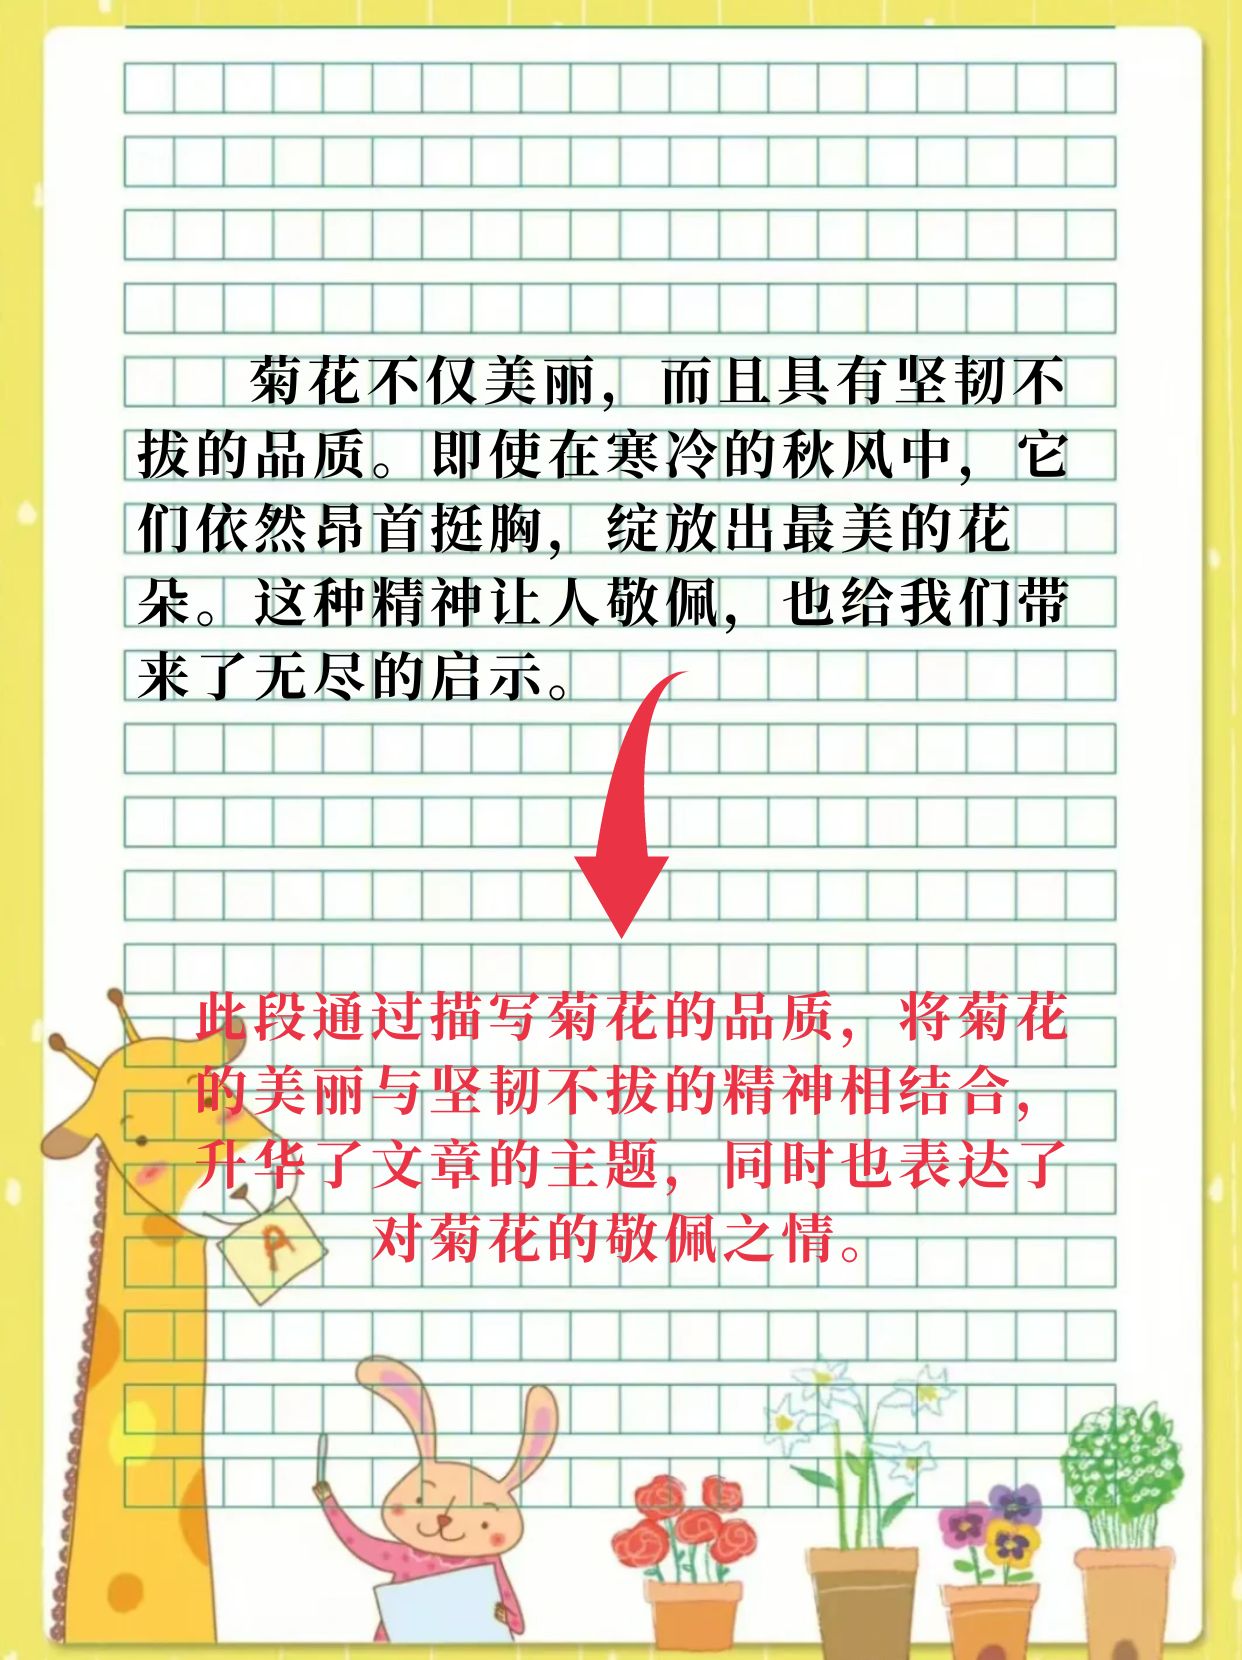 菊花不仅美丽，而且具有坚韧不
拔的品质。即使在寒冷的秋风中，它
们依然昂首挺胸，绽放出最美的花
朵。这种精神让人敬佩，也给我们带
来了无尽的启示。
此段通过描写菊花的品质，将菊花
的美丽与坚韧不拔的精神相结合，
升华了文章的主题，同时也表达了
对菊花的敬佩之情。
A